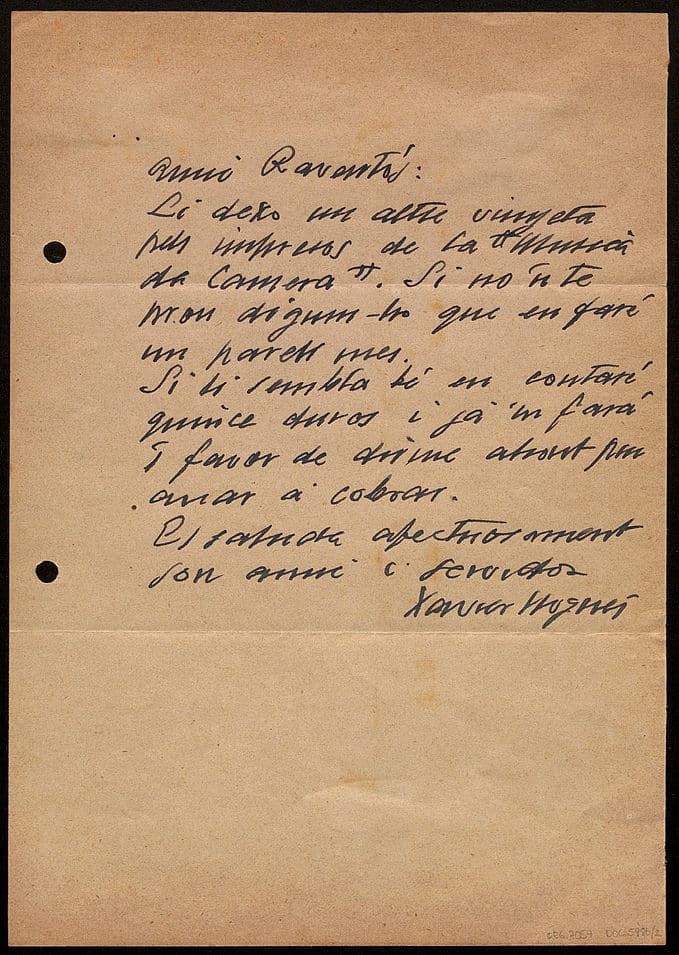 Amic Raventós:
Li dexo un altre vinyeta
pels impresos de La "Musica
da Camera". Si no'n te
prou digum-ho que en faré
un parell mes.
Si li sembla bé en contaré
quince duros i ja 'm fará
favor de dirme ahont puc
anar á cobrar.
El saluda afectuosament
son amic i servidor
Xavier Nogués